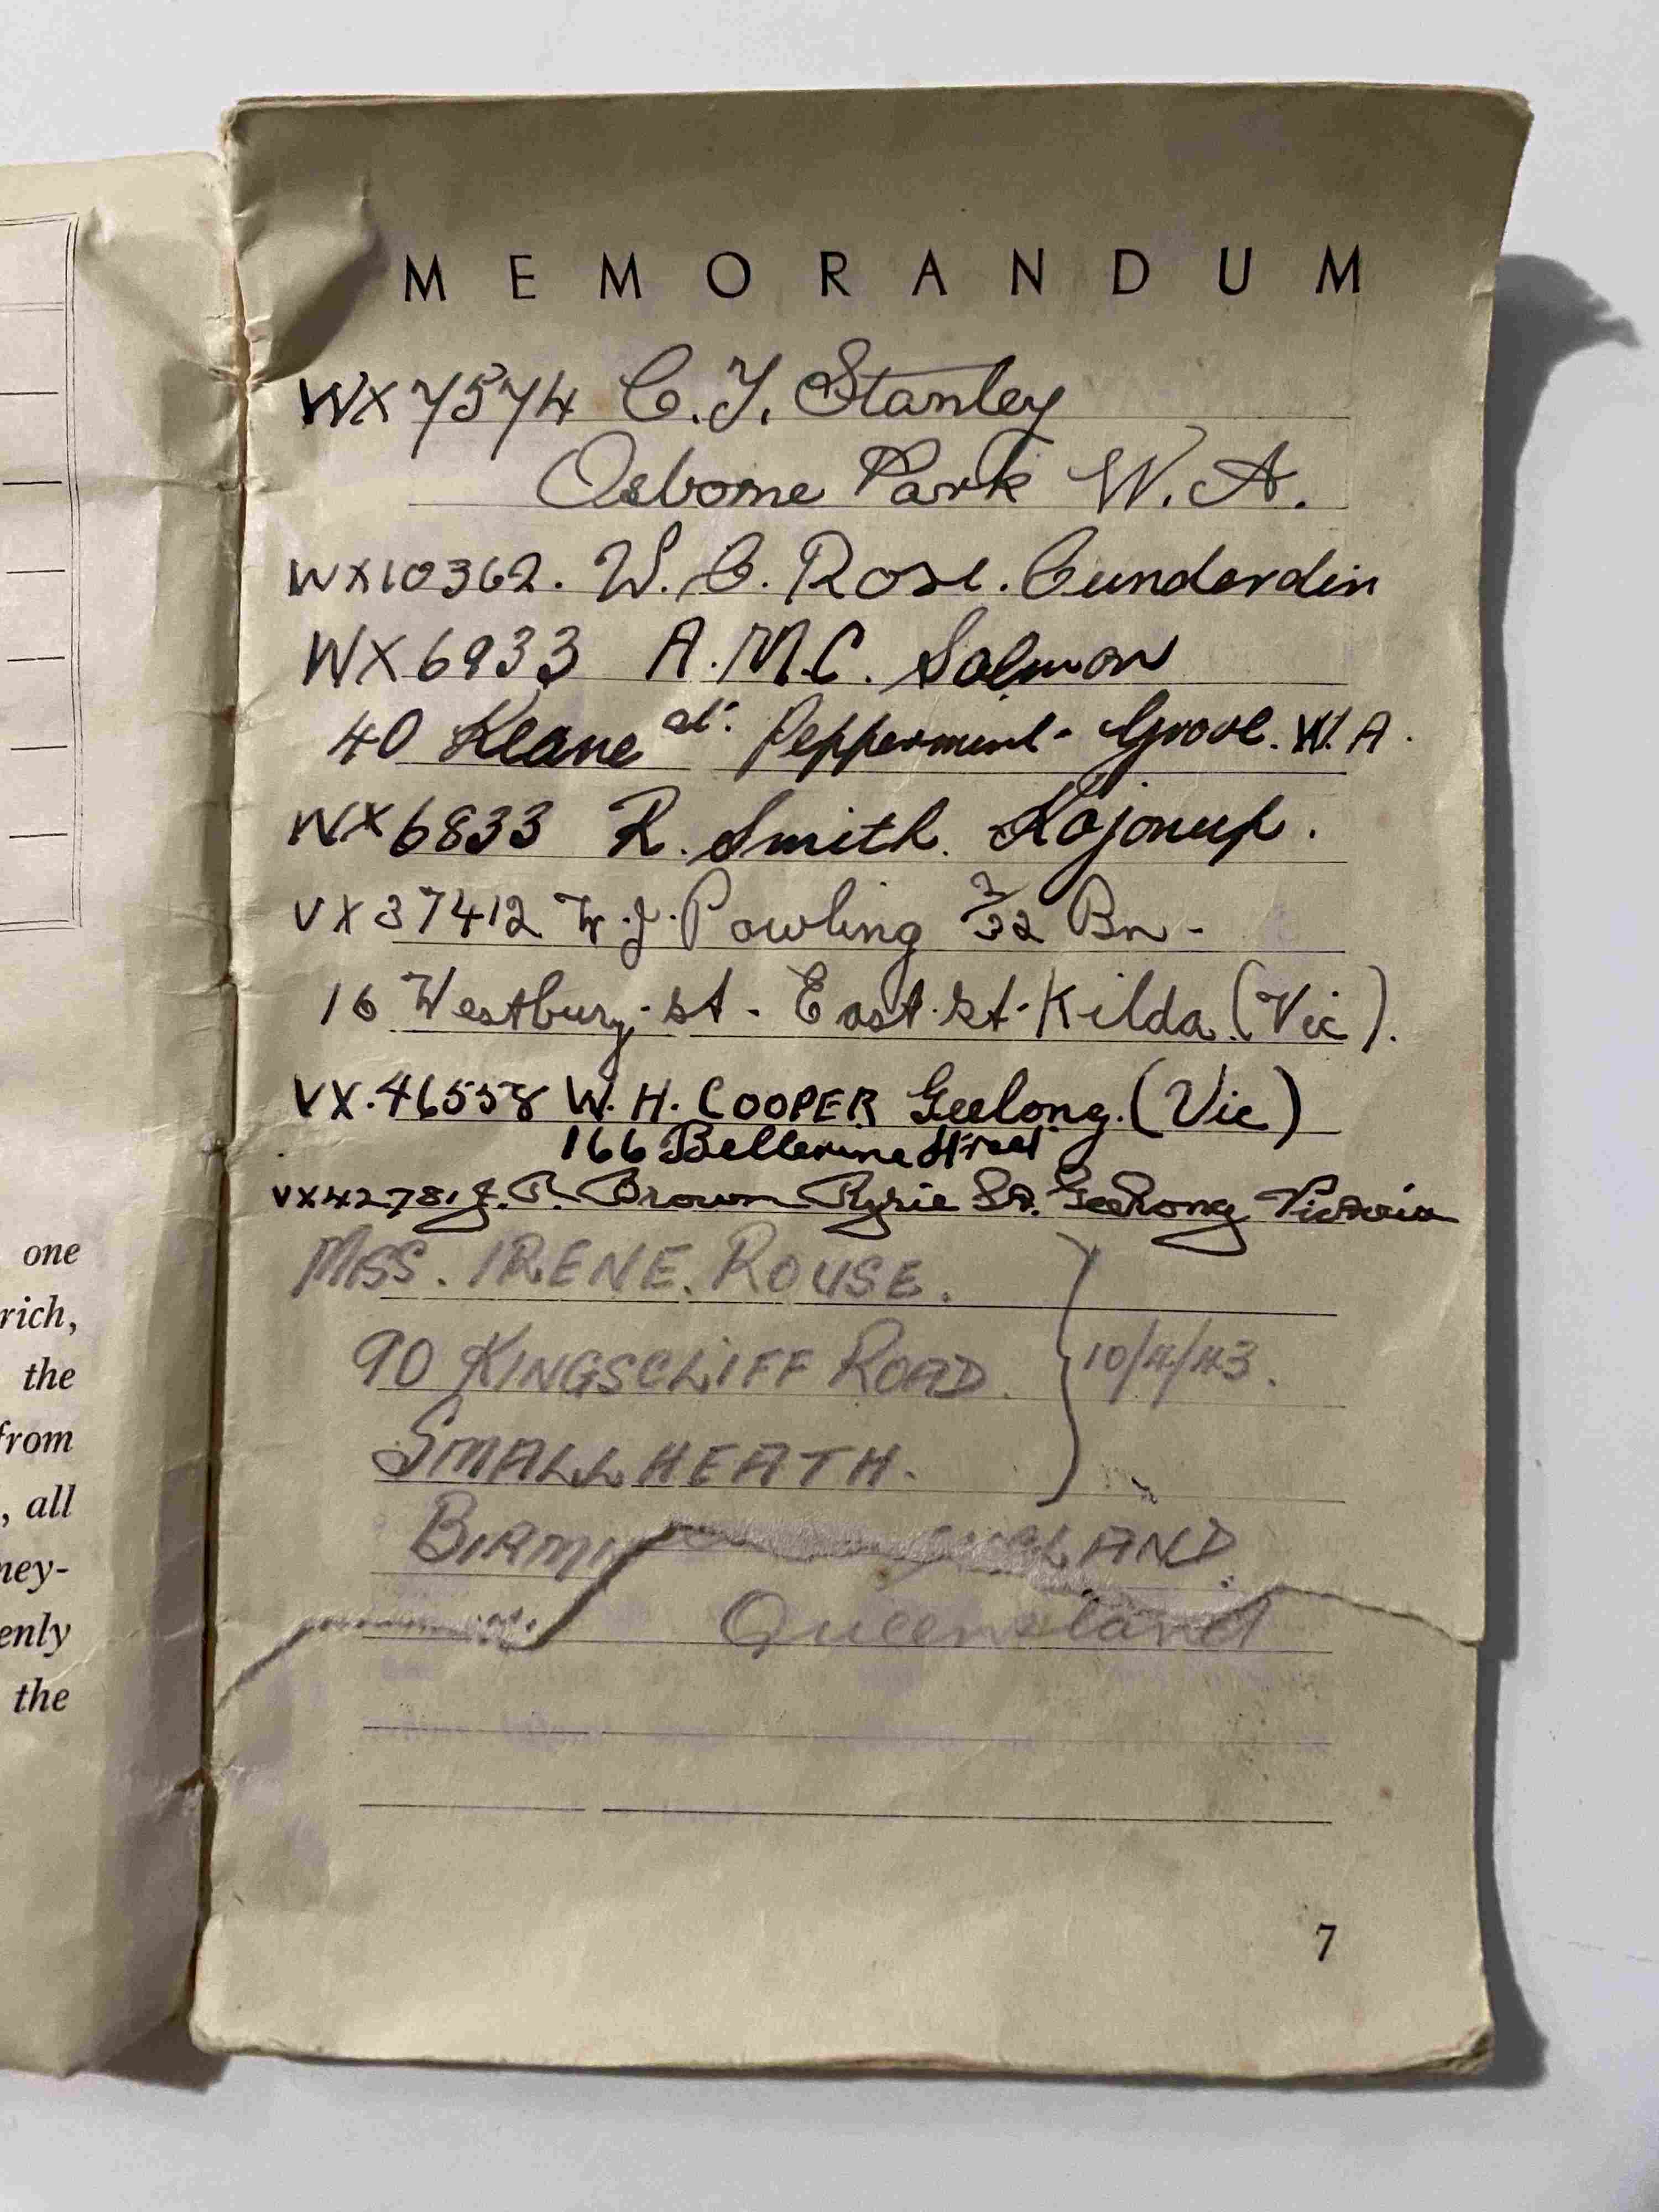 one
rich,
the
from
, all
ney-
enly
the
MEMORANDUM
WX7574 C. J. Stanley
Osborne Park W. A.
WX10362. W. C. Rose. Cunderdin
WX6933 A. M.C. Salmon
40 Keane st. Peppermint Grove. W. A.
WX6833 R. Smith. Kojonup.
VX37412 W. J. Powling 2/32 Bn -
16 Westbury - st - East - St - Kilda (Vic).
VX.46558 W. H. COOPER Geelong. (Vic)
166 Bellerine Street
VX42781 J. R. Brown Ryrie St. Geelong Victoria
MISS. IRENE. ROUSE.
90 KINGSCLIFF ROAD. 10/4/43.
SMALL HEATH.
Queensland
7